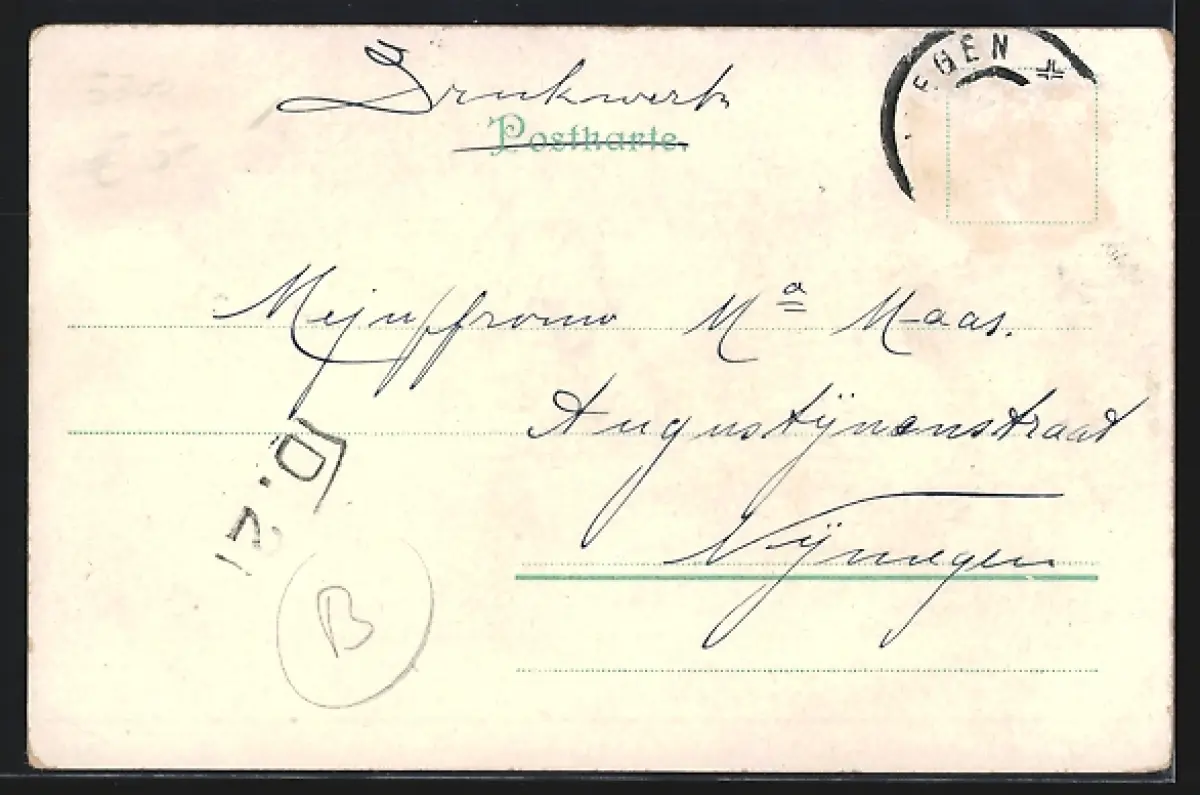 EGEN
Drukwerk
Postkarte.
Mejuffrouw Mª Maas.
Augustijnenstraat
Nijmegen
B